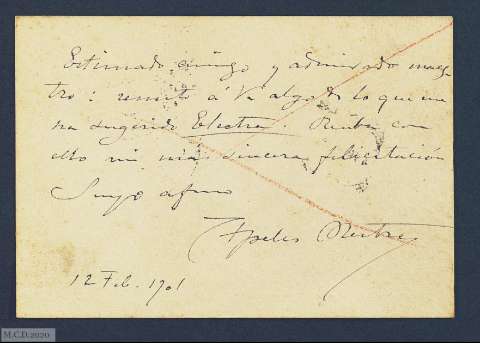 Estimado amigo y admirado maes-
tro: remito á V. algo de lo que me
ha sugerido Electra. Reciba con
ello mi más sincera felicitación
Suyo afmo
Apeles Mestres
12 Feb. 1901
M.C.D. 2020